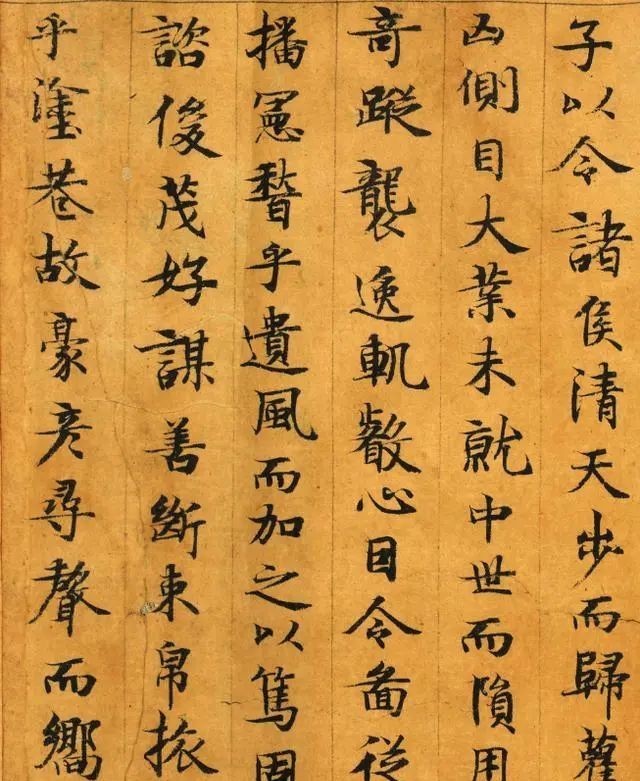 子以令諸侯清天步而歸舊
凶側目大業未就中世而隕用
奇蹤襲逸軌叡心因令圖從
播憲稽乎遺風而加之以篤固
諮俊茂好謀善斷束帛旅
乎塗巷故豪彦尋聲而嚮